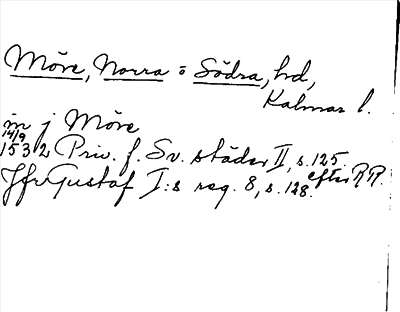 Möre, Norra o Södra, hd,
Kalmar l.
in j Möre
14/9
1532 Priv. f. Sv. städer II, s. 125 efter RR.
Jfr Gustaf I:s reg. 8, s. 128.